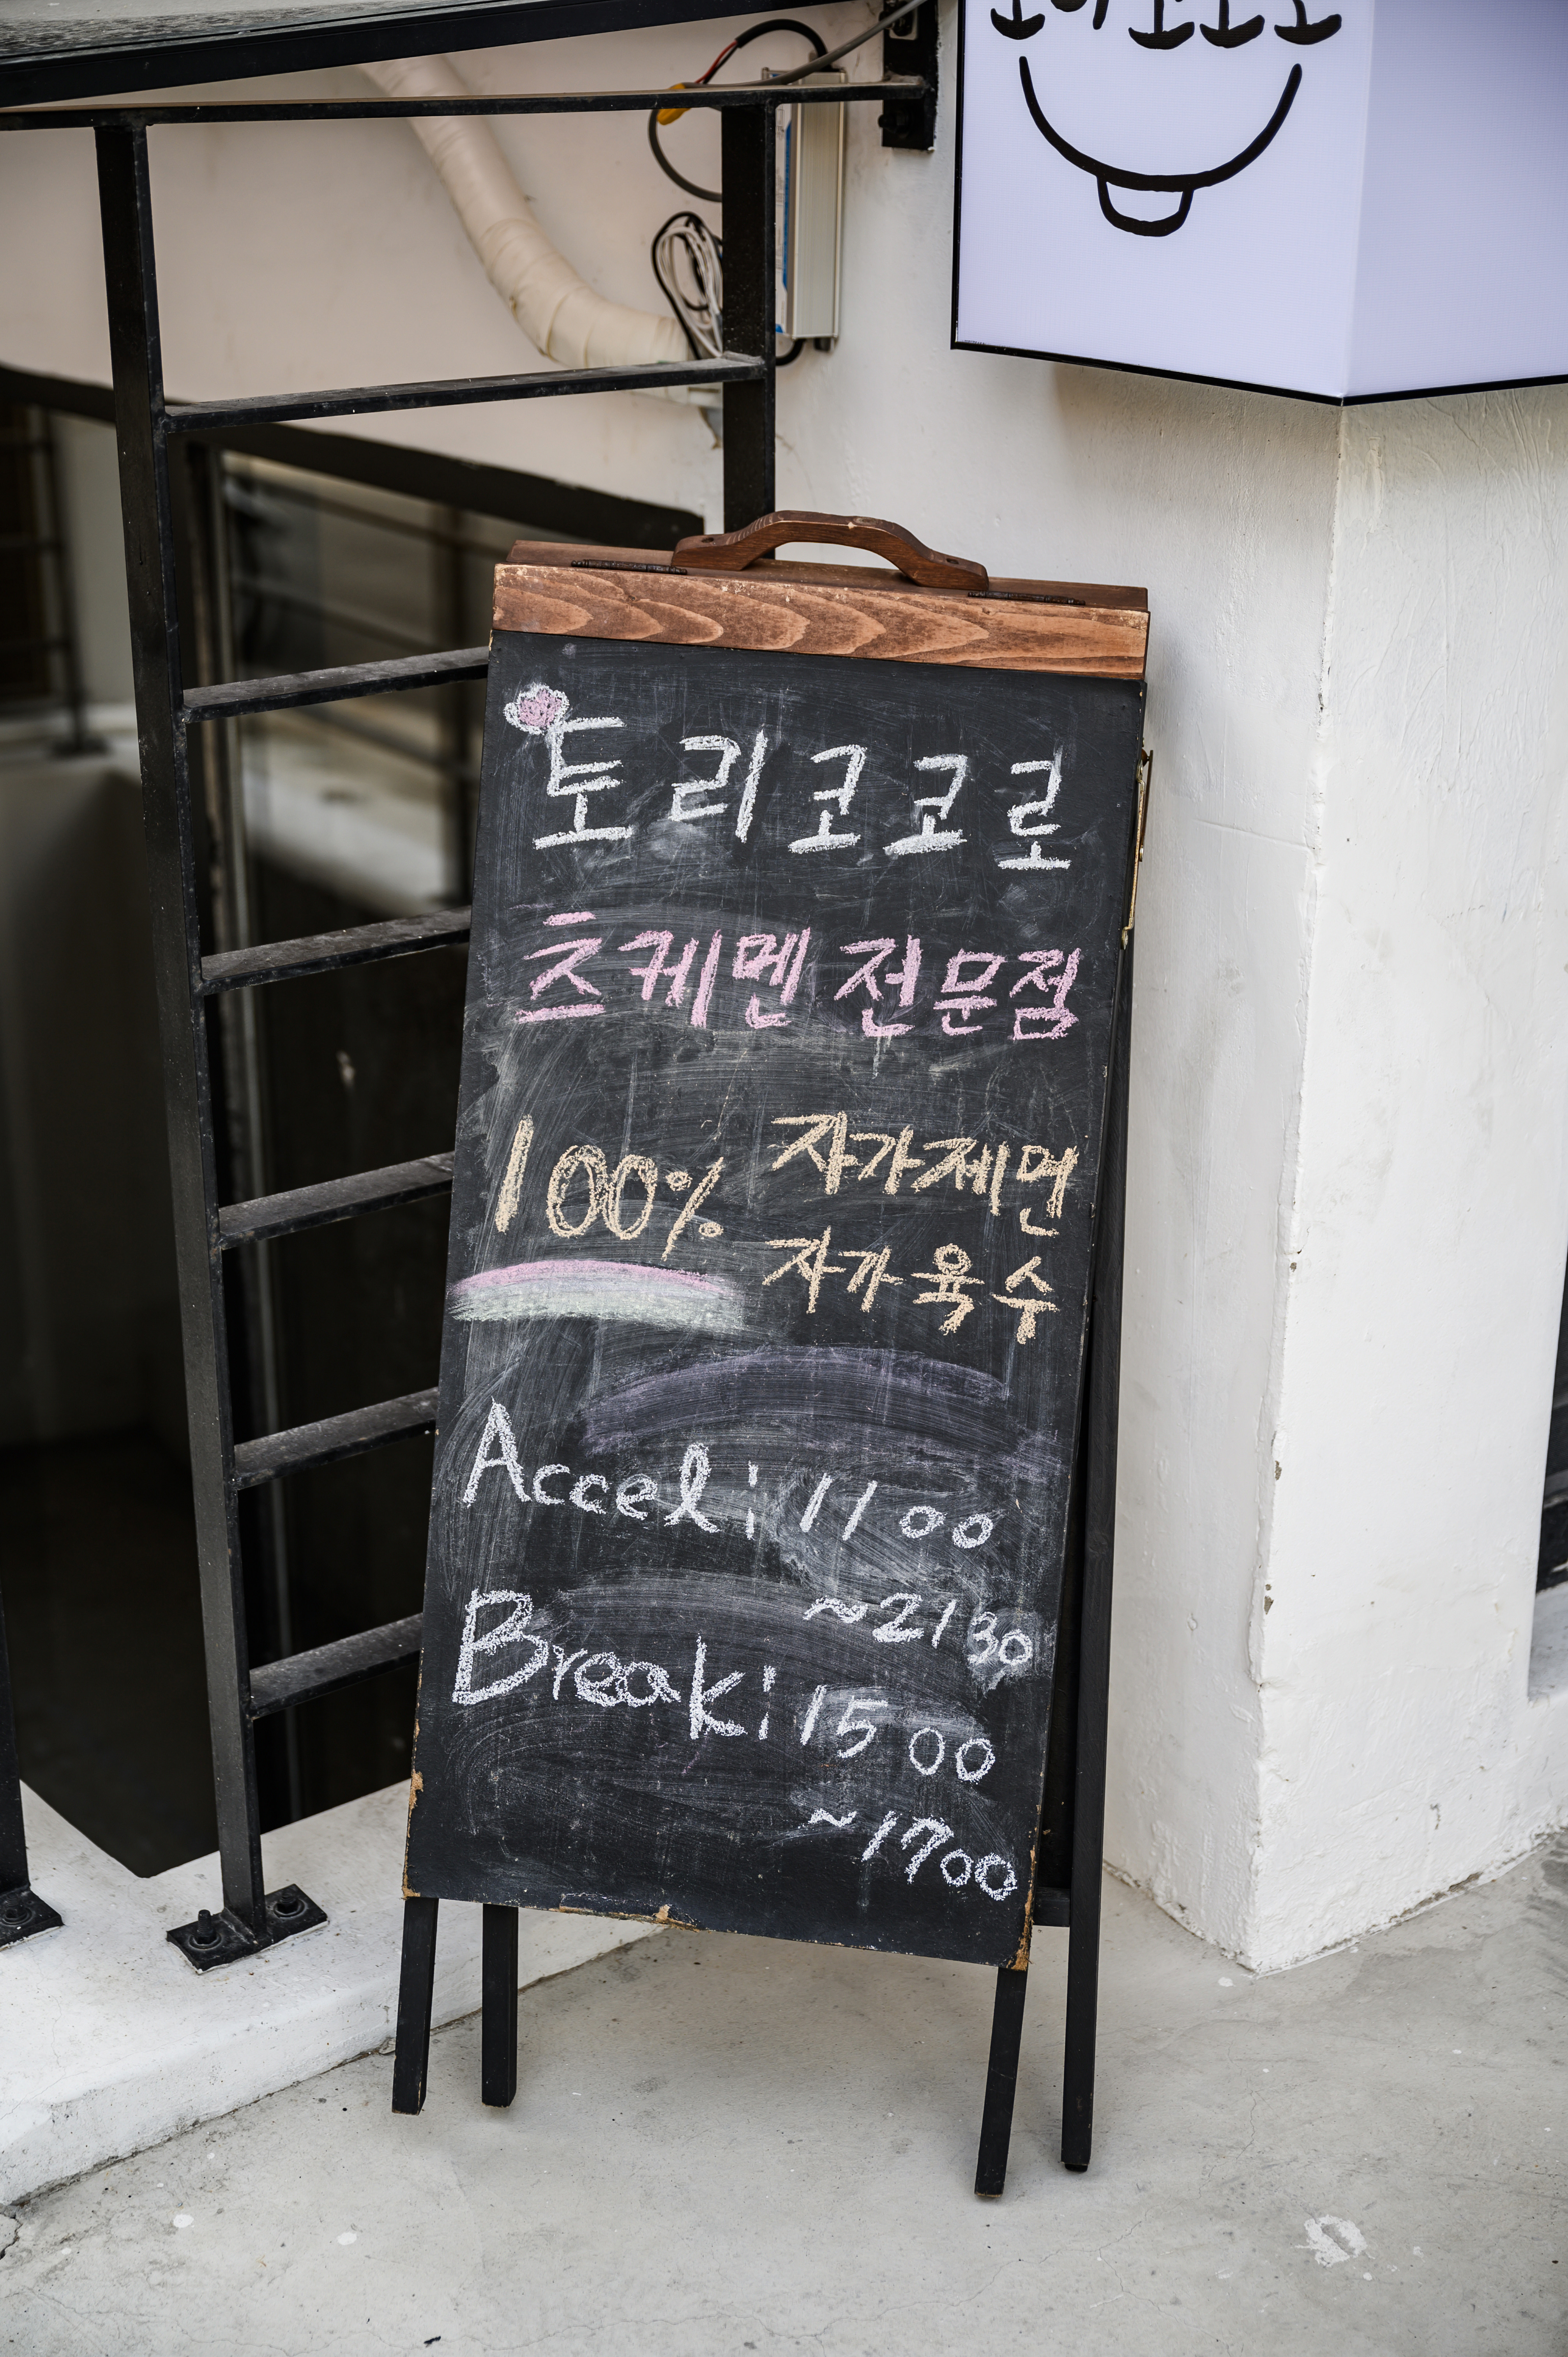 토리코코로
츠케멘 전문점
100% 자가제면
자가육수
Accel: 11 00
~21 30
Break: 15 00
~17 00